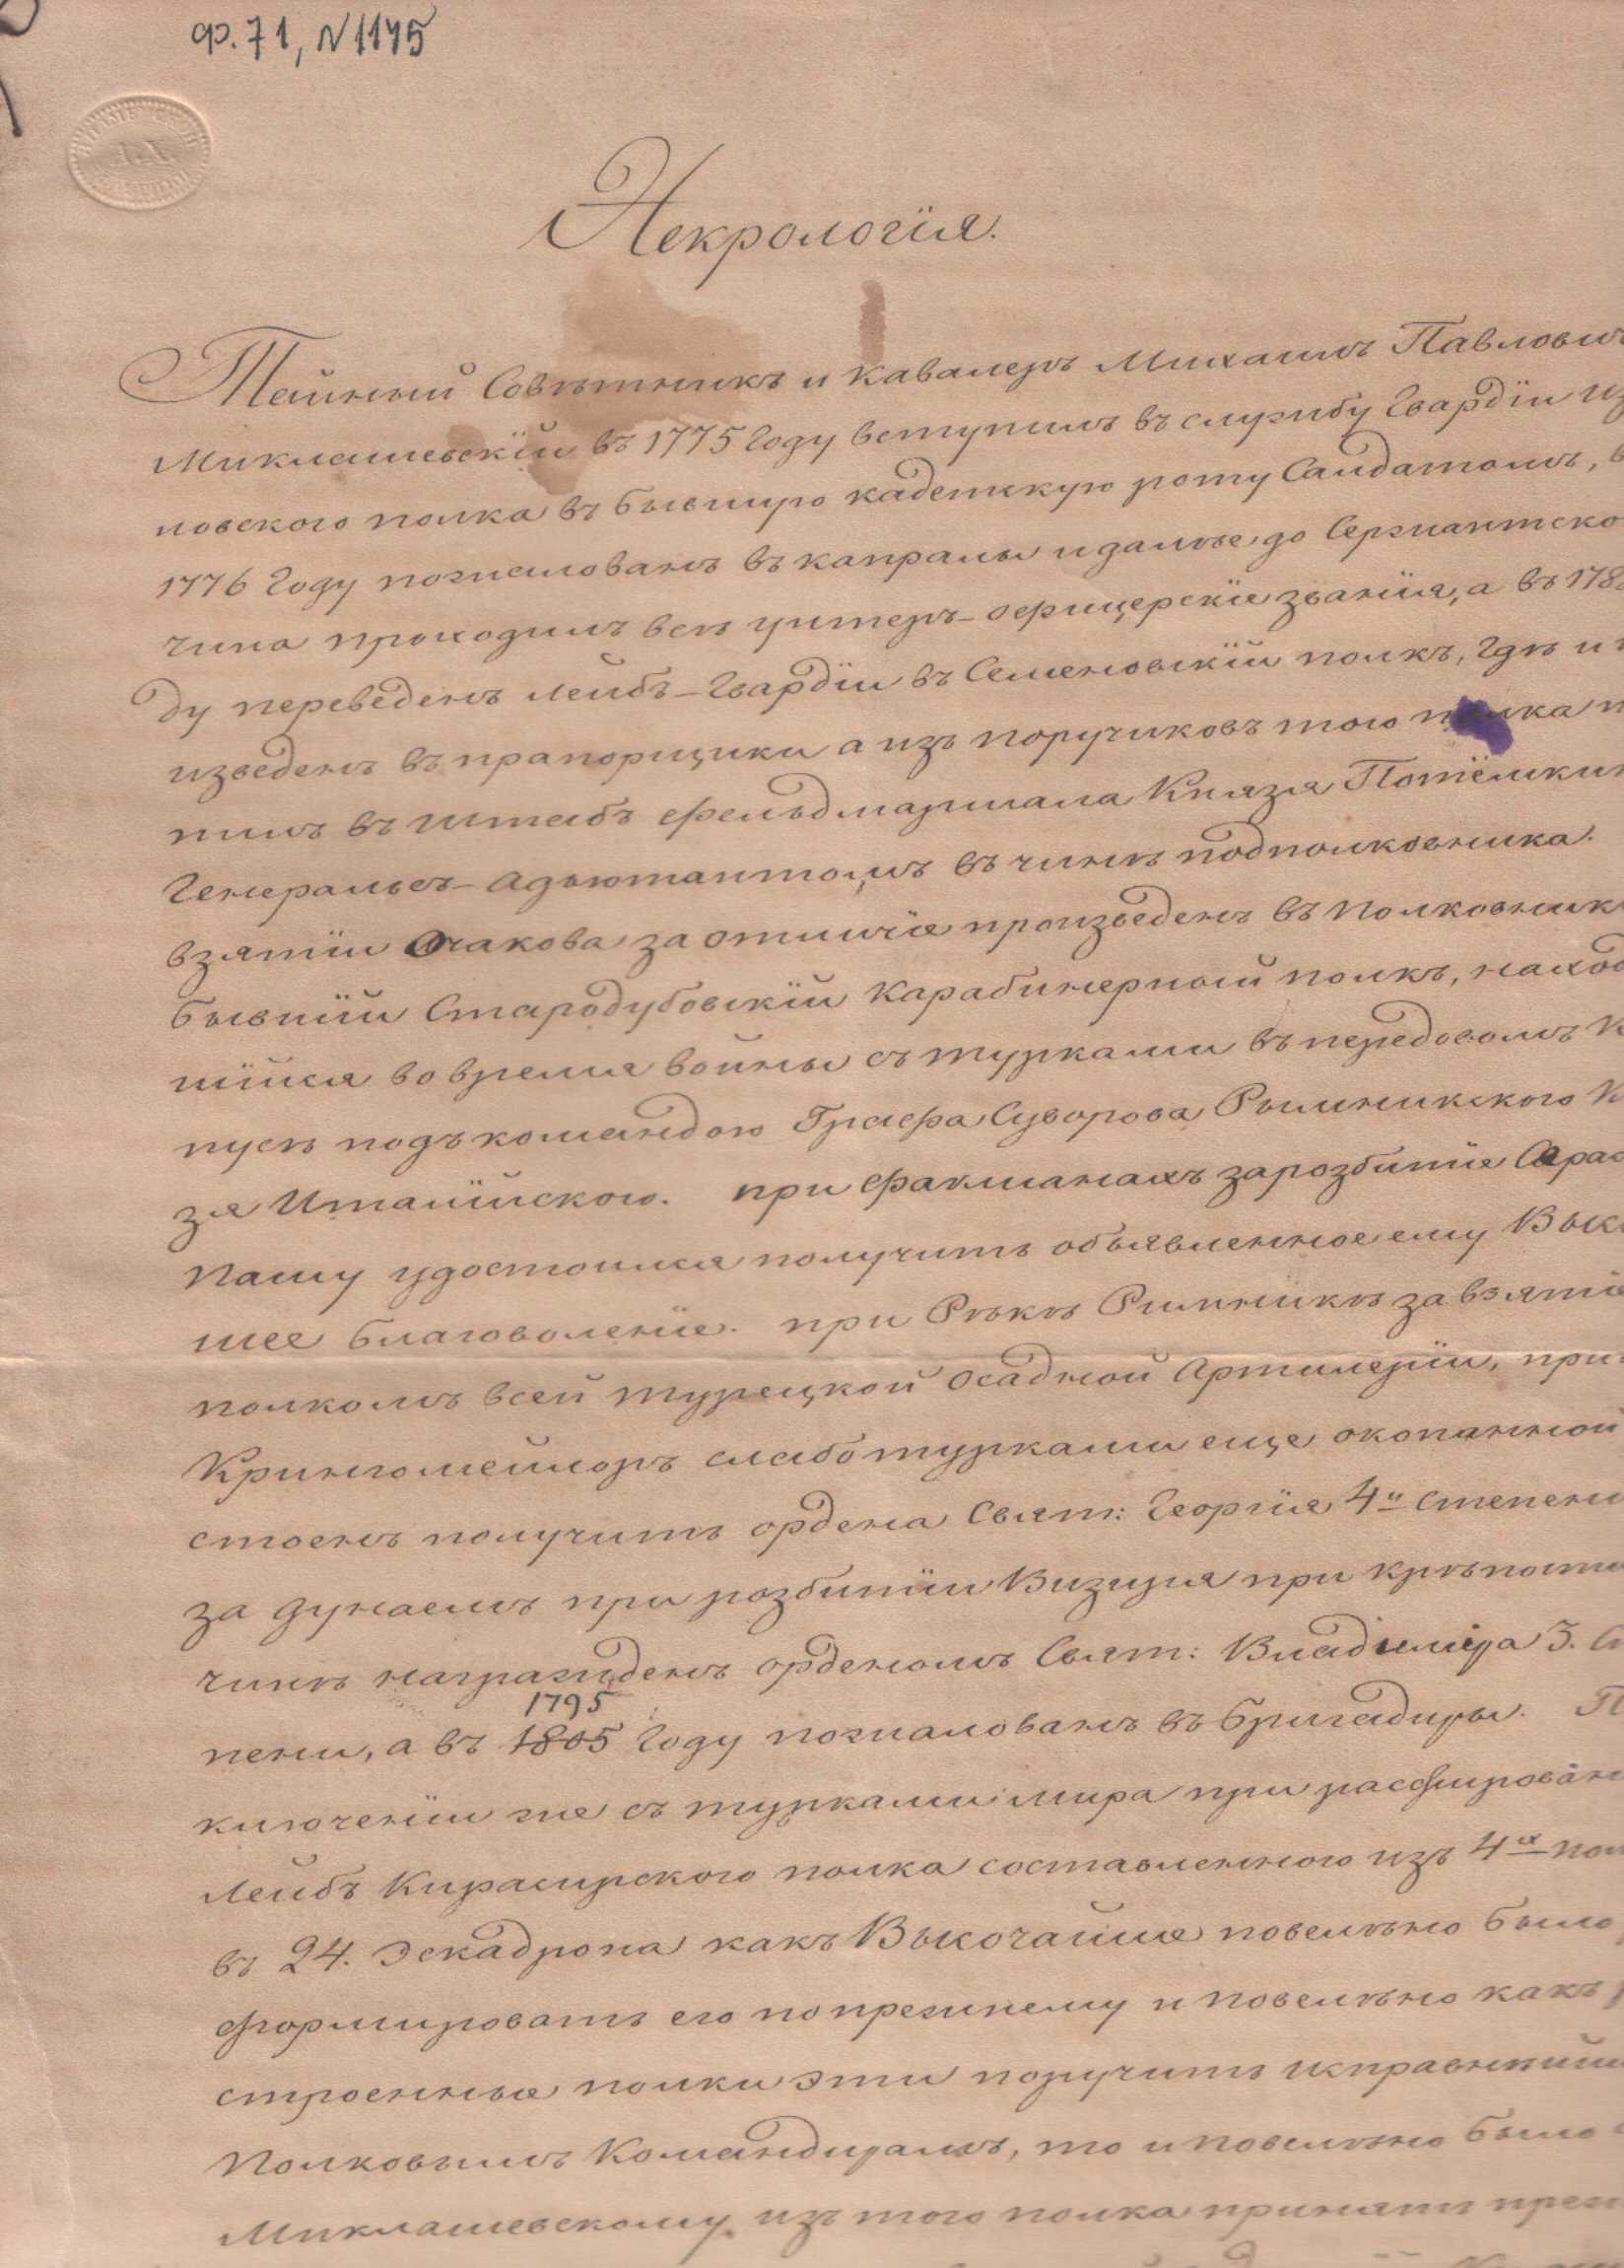 ф. 71, N 1145
Некрологія.
Тайный Совѣтникъ и Кавалеръ Михаилъ Павлович
Миклашевскій въ 1775 Году вступилъ въ службу Гвардіи Из
ловского полка въ бывшую кадетскую роту Салдатомъ, в
1776 Году пожалованъ въ капралы и далѣе до Сержантско
чина проходилъ всѣ унтеръ-офицерскіе званія, а въ 178
ду переведенъ Лейбъ-Гвардіи въ Семеновскій полкъ, Гдѣ и
изведенъ въ прапорщики а изъ поручиковъ того полка п
пилъ въ штабъ фельдмаршала Князя Потёмкин
Генеральсъ-Адьютантомъ въ чинѣ подполковника.
взятіи Очакова за отличіе произведенъ въ Полковник
бывшій Стародубовскій Карабинерный полкъ, наход
шійся во время войны съ турками въ передовомъ К
пусѣ подъ командою Графа Суворова Рымникского К
зя Италійского. при Факшанахъ за розбитіе Сарас
пашу удостоился получить объявленное ему Выс
шее благоволеніе. при Рѣкѣ Римникѣ за взятіе
полкомъ всей турецкой осадной Артилеріи, при
Крингомейлоръ слабо турками еще окопанной
стоенъ получить ордена Свят: Георгія 4й степени
за Дунаемъ при розбитіи Визиря при крѣпости
чинѣ награжденъ орденомъ Свят: Владиміра 3. Ст
1795
пени, а въ 1805 Году пожалованъ въ бригадиры. П
ключеніи же съ турками мира при расформирован
Лейбъ Кирасирского полка составленного изъ 4х пол
въ 24. Эскадрона какъ Высочайше повелѣно было
формировать его по прежнему и повелѣно какъ р
строенные полки эти поручить исправнѣйши
Полковымъ Командирамъ, то и повелѣно было
Миклашевскому изъ того полка принять преж